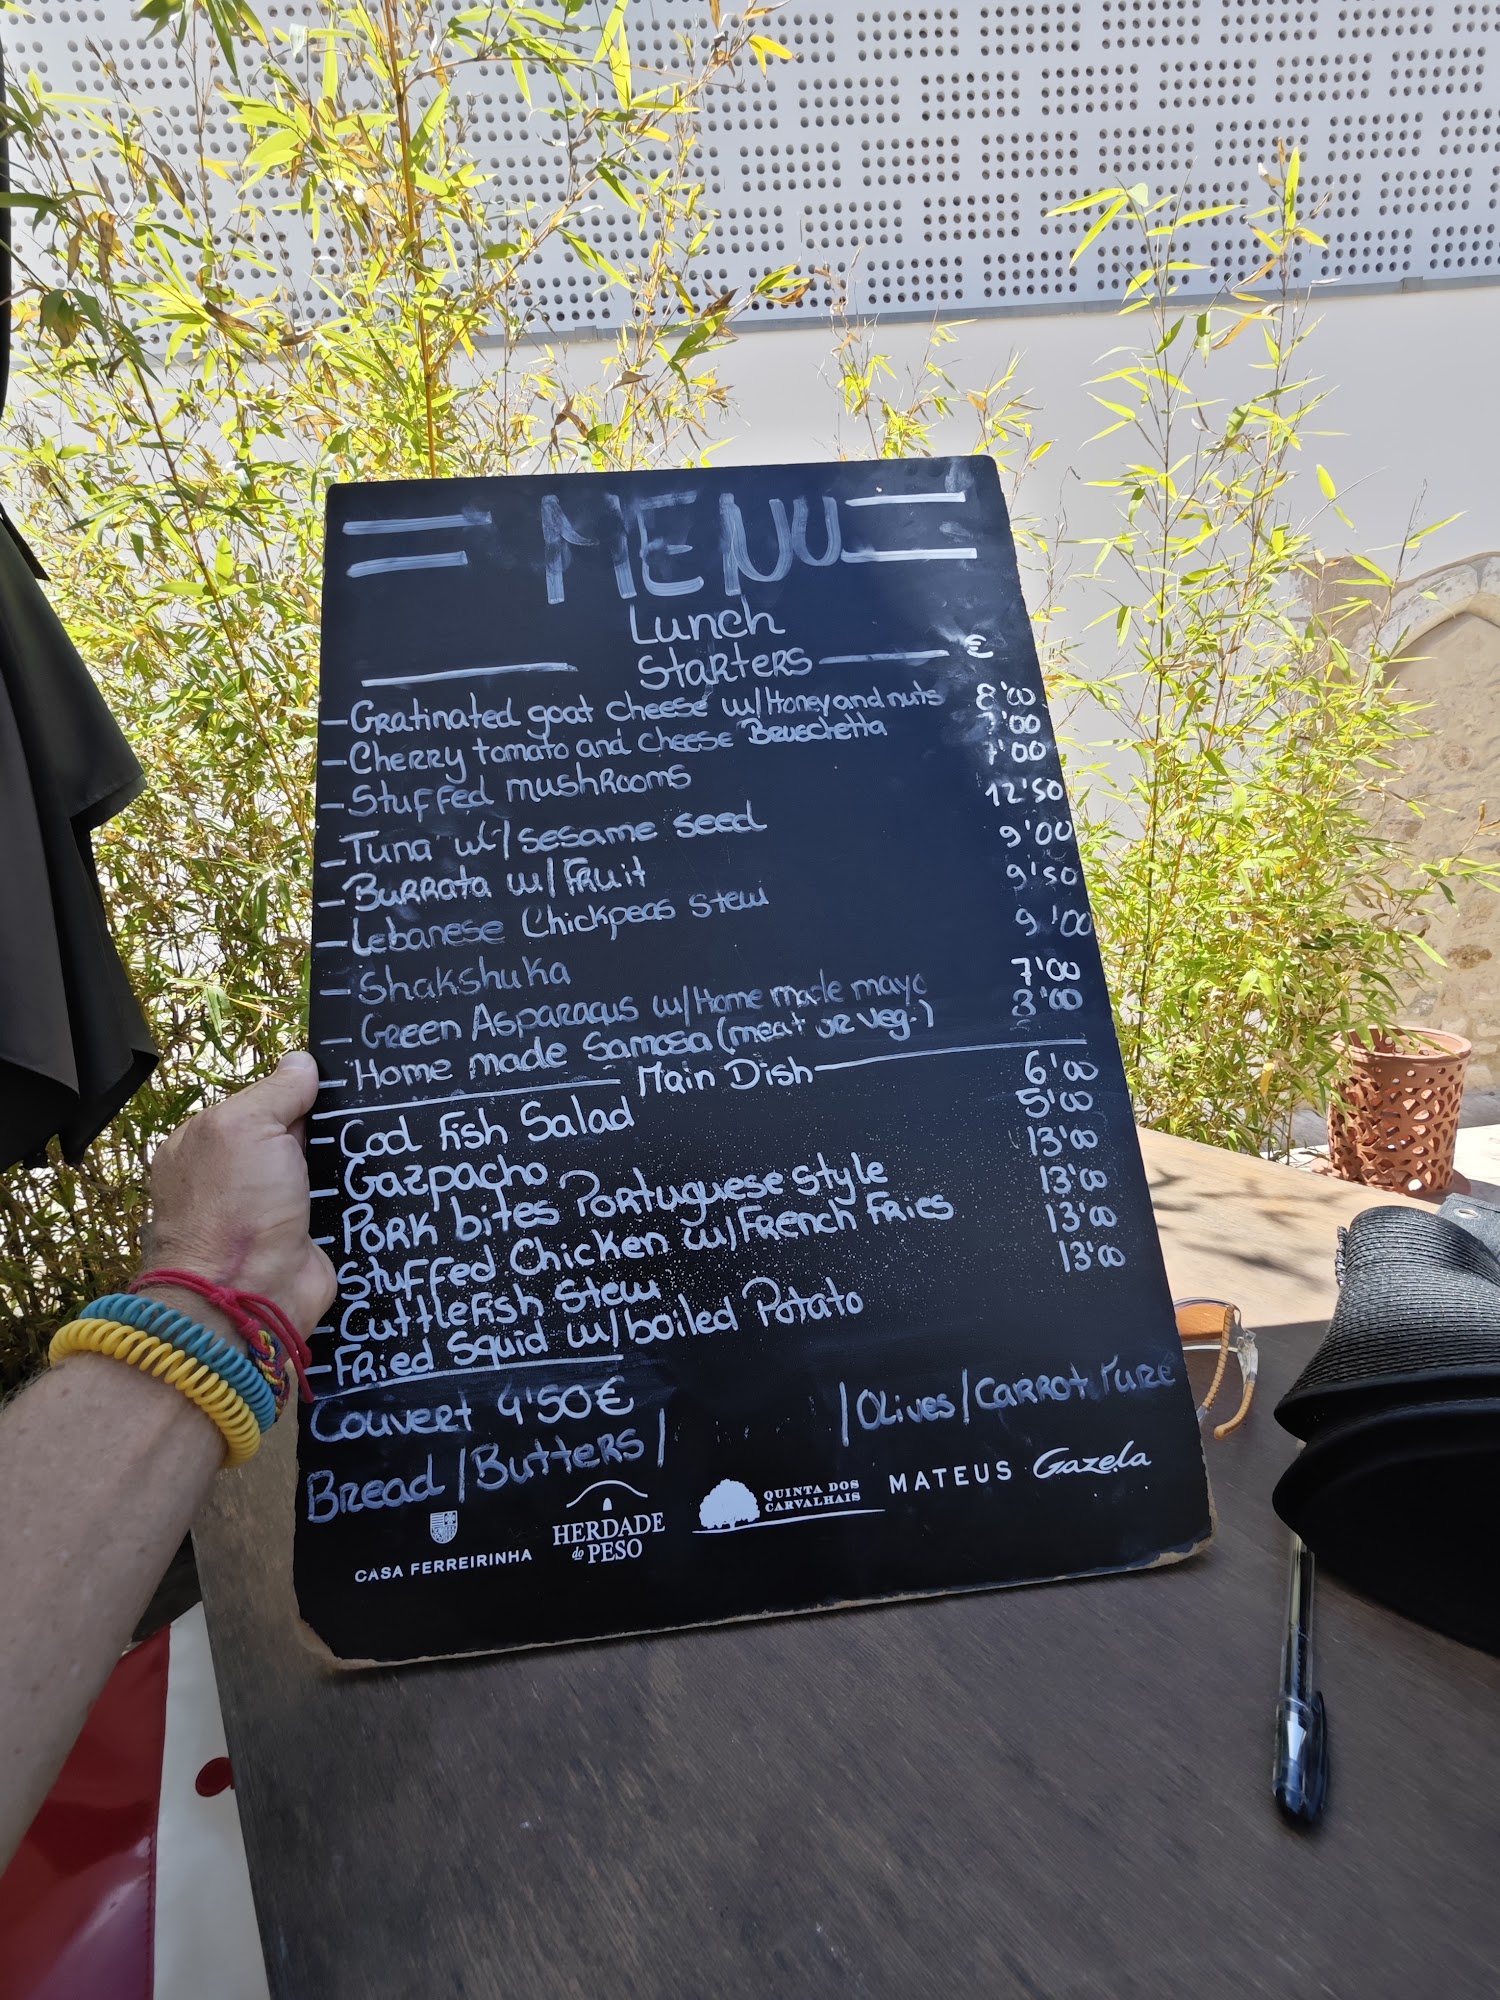 MENU
Lunch
Starters €
- Gratinated goat cheese w/Honey and nuts 8'00
- Cherry tomato and cheese Bruschetta 7'00
- Stuffed mushrooms 7'00
- Tuna w/sesame seed 12'50
- Burrata w/Fruit 9'00
- Lebanese Chickpeas stew 9'50
- Shakshuka 9'00
- Green Asparagus w/Home made mayo 7'00
- Home made Samosa (meat or veg.) 3'00
Main Dish
- Cod Fish Salad 6'00
- Gazpacho 5'00
- Pork bites Portuguese style 13'00
- Stuffed Chicken w/French Fries 13'00
- Cuttlefish Stew 13'00
- Fried Squid w/boiled Potato 13'00
Couvert 4'50€
Bread/Butters/ /Olives/Carrot Pure
CASA FERREIRINHA
HERDADE
do PESO
QUINTA DOS
CARVALHAIS
MATEUS
Gazela